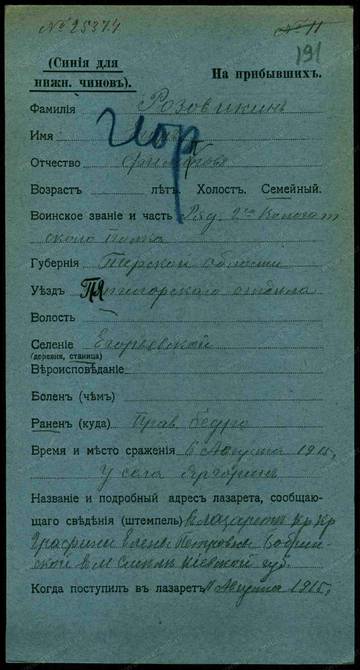 № 25374
№ 11
191
(Синія для
нижн. чиновъ).
На прибывшихъ.
Фамилія Розовикинъ
Имя
Отчество
Возрастъ лѣтъ. Холостъ. Семейный.
Воинское званіе и часть Ряд. 2го
скаго полка
Губернія Терской области
Уѣздъ Пятигорскаго отдѣла
Волость
Селеніе Егорьевской
(деревня, станица)
Вѣроисповѣданіе
Боленъ (чѣмъ)
Раненъ (куда) Прав. бедро
Время и мѣсто сраженія 6 Августа 1915г.
У села
Названіе и подробный адресъ лазарета, сообщаю-
щаго свѣдѣнія (штемпель) в лазаретѣ Кр Кр
Графини Елены Петровны Бобрин-
ской в м Смѣлѣ Кіевской губ.
Когда поступилъ въ лазаретъ 11 Августа 1915г.